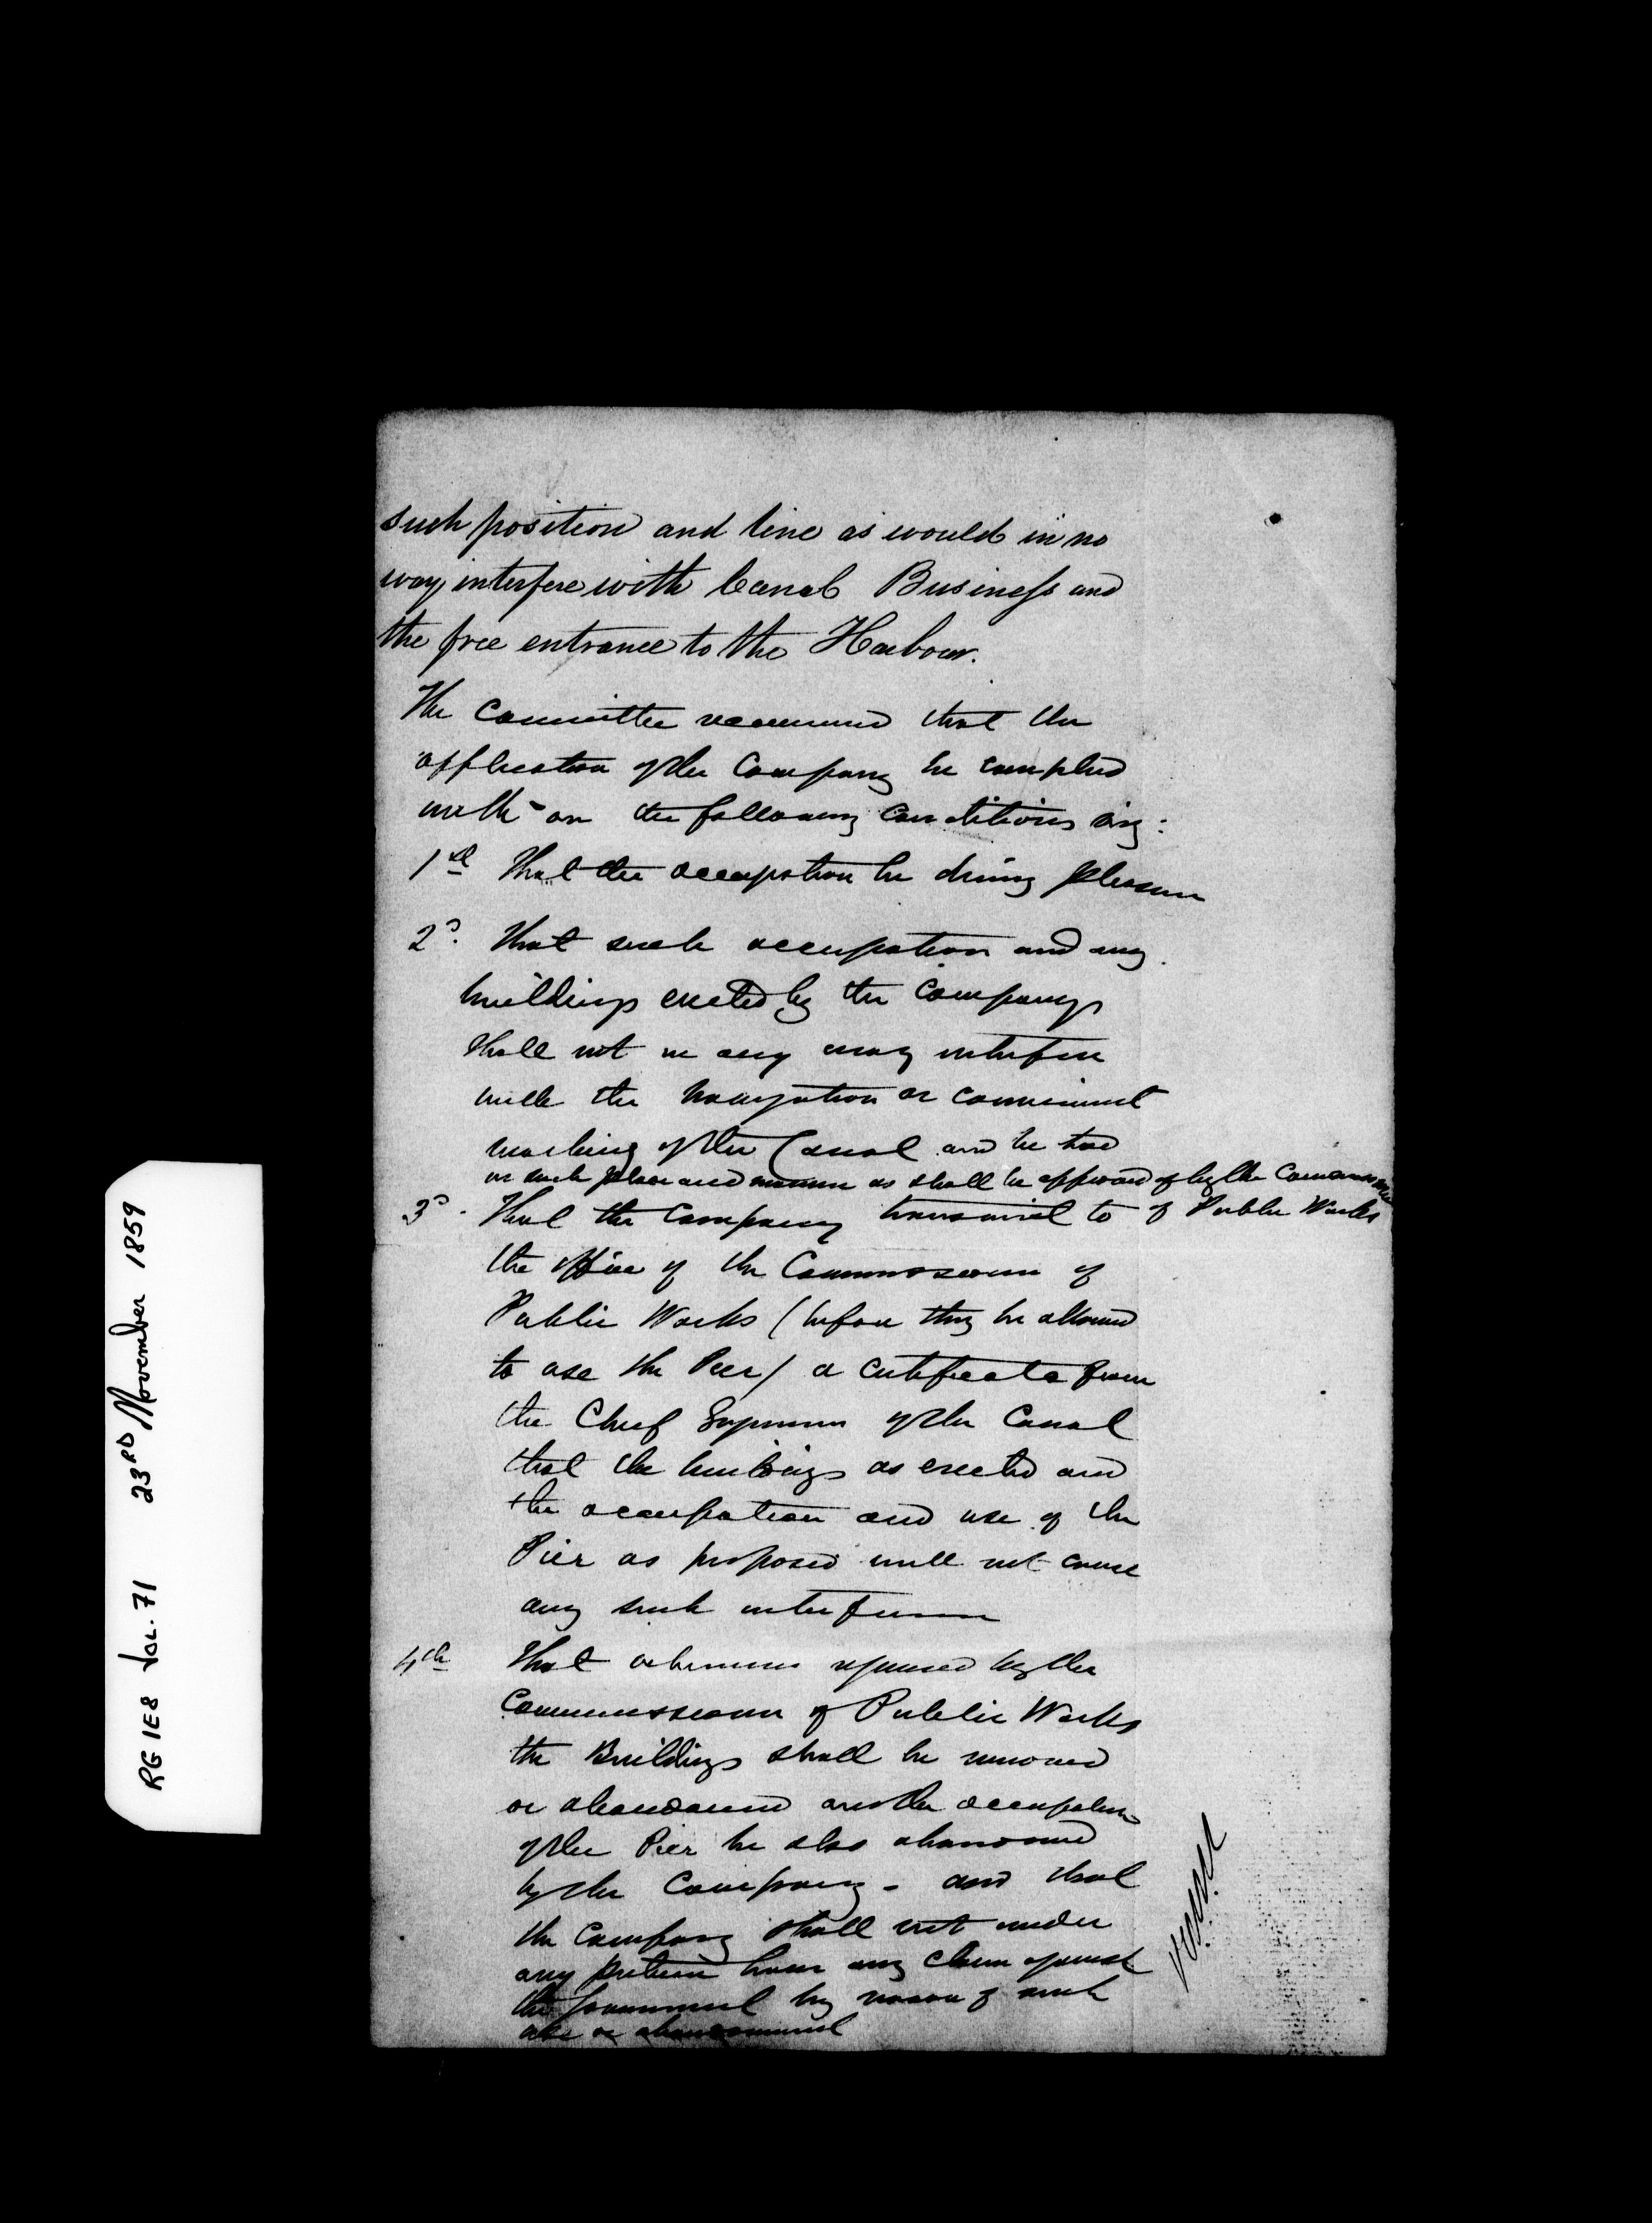 such position and line as would in no
way interfere with Canal Business and
the free entrance to the Harbour.
The Committee recommend that the
application of the Company be complied
with on the following conditions viz:
1st That the occupation be during pleasure
2d. That such occupation and any
buildings erected by the Company
shall not in any way interfere
with the navigation or convenient
working of the Canal and be had
in such place and manner as shall be approved of by the Commissioner
of Public Works
3d. That the Company transmit to
the office of the Commissioner of
Public Works (before they be allowed
to use the Pier) a certificate from
the Chief Engineer of the Canal
that the buildings as erected and
the occupation and use of the
Pier as proposed will not cause
any such interference
4th That whenever required by the
Commissioner of Public Works
the Buildings shall be removed
or abandoned and the occupation
of the Pier be also abandoned
by the Company - and that
the Company shall not under
any pretence have any claim against
the Government by reason of such
use or abandonment
RG 1E8 Vol. 71 23RD November 1859